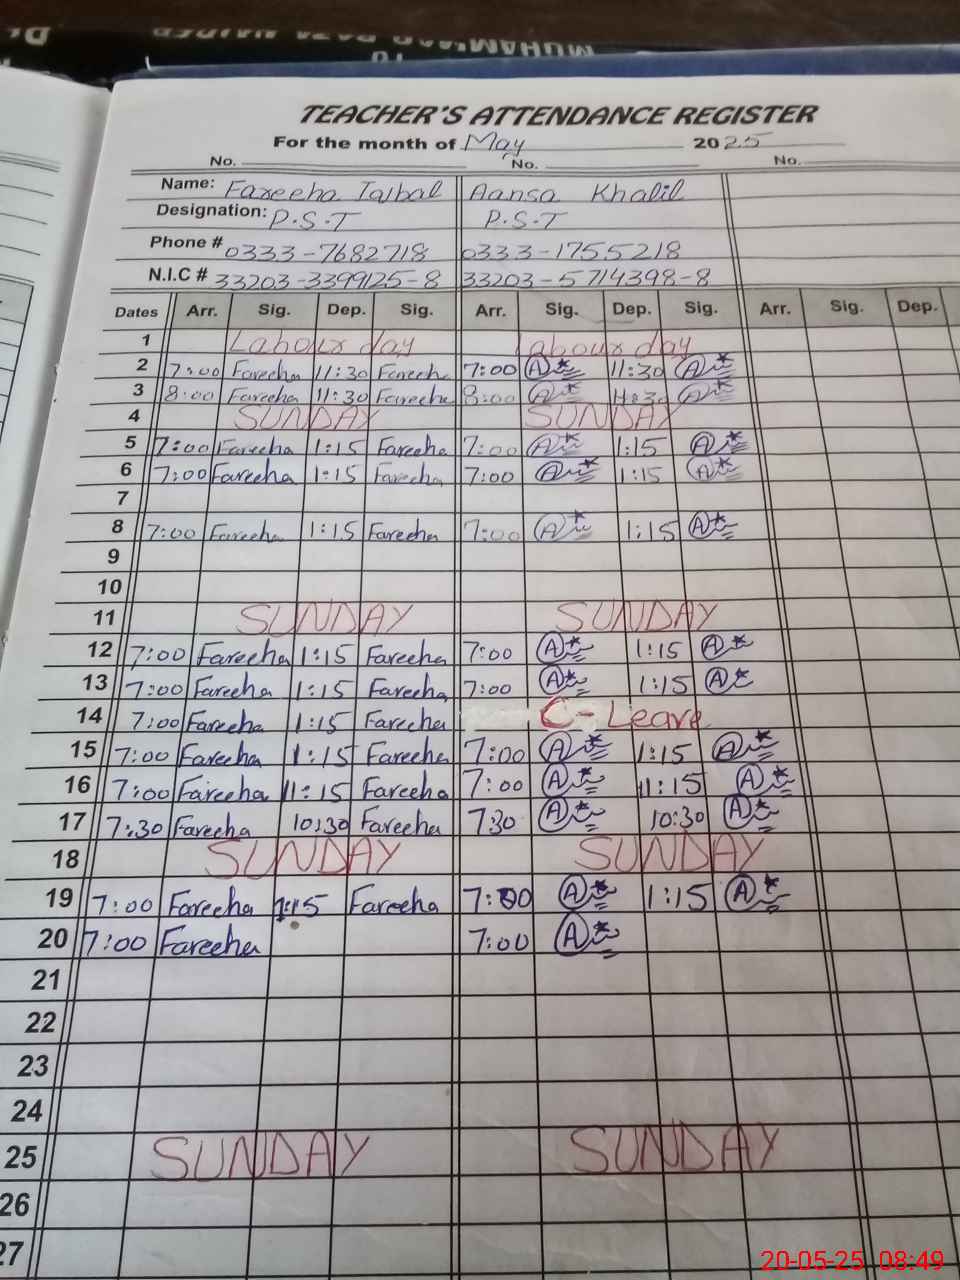 MUHAMMAD RAZA MAJEED
TEACHER'S ATTENDANCE REGISTER
For the month of May 2025
No. No. No.
Name: Fareeha Iqbal Aansa Khalil
Designation: P.S.T P.S.T
Phone # 0333-7682718 0333-1755218
N.I.C # 33203-3399125-8 33203-5714398-8
Dates Arr. Sig. Dep. Sig. Arr. Sig. Dep. Sig. Arr. Sig. Dep.
1 Labour day Labour day
2 7:00 Fareeha 11:30 Fareeh 7:00 A 11:30 A
3 8:00 Fareeha 11:30 Fareeha 8:00 A 11:30 A
4 SUNDAY SUNDAY
5 7:00 Fareeha 1:15 Fareeha 7:00 A 1:15 A
6 7:00 Fareeha 1:15 Fareeha 7:00 A 1:15 A
7
8 7:00 Fareeha 1:15 Fareeha 7:00 A 1:15 A
9
10
11 SUNDAY SUNDAY
12 7:00 Fareeha 1:15 Fareeha 7:00 A 1:15 A
13 7:00 Fareeha 1:15 Fareeha 7:00 A 1:15 A
14 7:00 Fareeha 1:15 Fareeha C-Leave
15 7:00 Fareeha 1:15 Fareeha 7:00 A 1:15 A
16 7:00 Fareeha 11:15 Fareeha 7:00 A 11:15 A
17 7:30 Fareeha 10:30 Fareeha 7:30 A 10:30 A
18 SUNDAY SUNDAY
19 7:00 Fareeha 1:15 Fareeha 7:00 A 1:15 A
20 7:00 Fareeha 7:00 A
21
22
23
24
25 SUNDAY SUNDAY
26
27
20-05-25 08:49